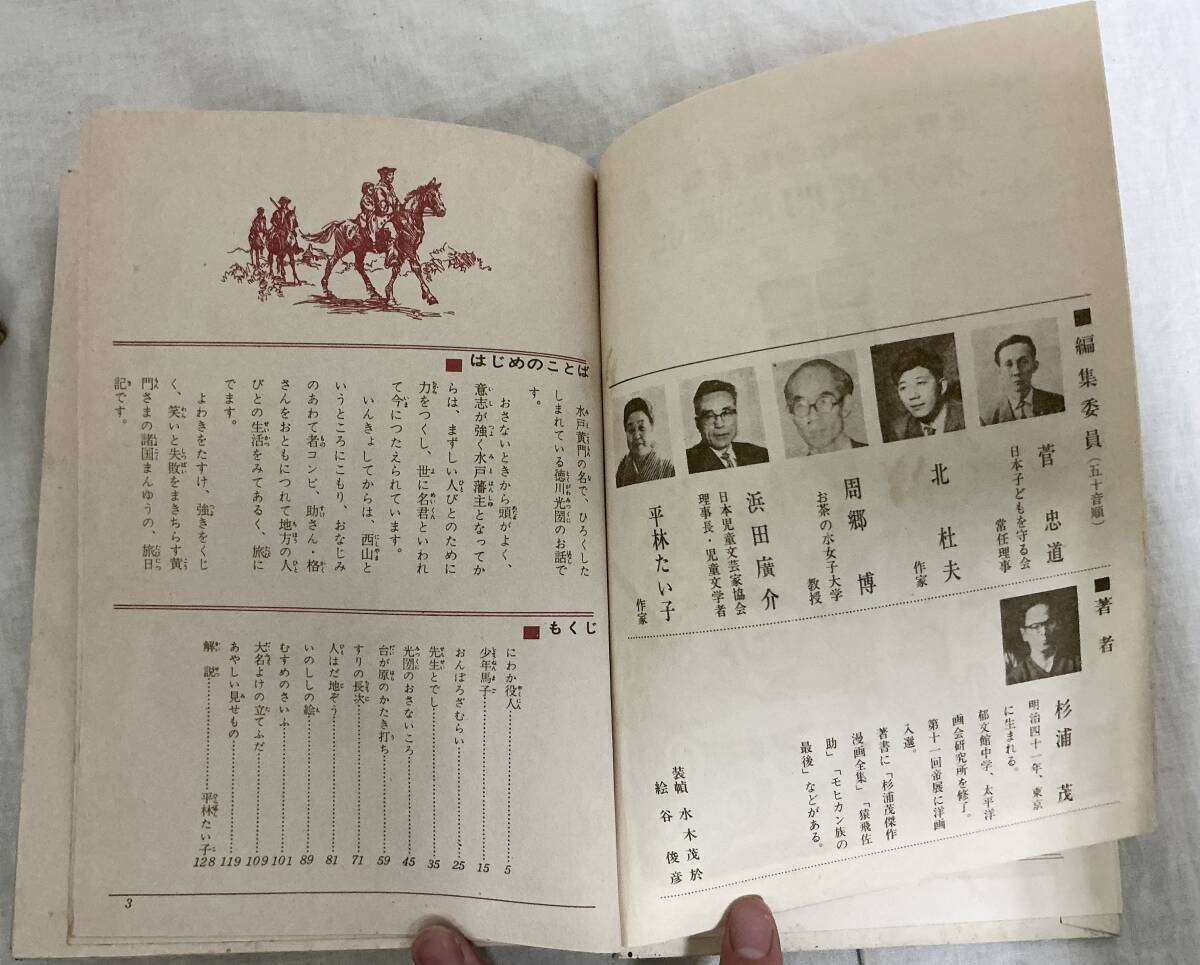 ■編集委員(五十音順)
菅 忠道
日本子どもを守る会
常任理事
北 杜夫
作家
周郷 博
お茶の水女子大学
教授
浜田廣介
日本児童文芸家協会
理事長・児童文学者
平林たい子
作家
■著者
杉浦 茂
明治四十一年、東京
に生まれる。
郁文館中学、太平洋
画会研究所を修了。
第十一回帝展に洋画
入選。
著書に「杉浦茂傑作
漫画全集」「猿飛佐
助」「モヒカン族の
最後」などがある。
装幀 水木茂於
絵 谷 俊彦
■はじめのことば
水戸黄門の名で、ひろくした
しまれている徳川光圀のお話で
す。
おさないときから頭がよく、
意志が強く水戸藩主となってか
らは、まずしい人びとのために
力をつくし、世に名君といわれ
て今につたえられています。
いんきょしてからは、西山と
いうところにこもり、おなじみ
のあわて者コンビ、助さん・格
さんをおともにつれて地方の人
びとの生活をみてあるく、旅に
でます。
よわきをたすけ、強きをくじ
く、笑いと失敗をまきちらす黄
門さまの諸国まんゆうの、旅日
記です。
■もくじ
にわか役人 5
少年馬子 15
おんぼろざむらい 25
先生とでし 35
光圀のおさないころ 45
台が原のかたき打ち 59
すりの長次 71
人はだ地ぞう 81
いのししの絵 89
むすめのさいふ 101
大名よけの立てふだ 109
あやしい見せもの 119
解説 平林たい子 128
3